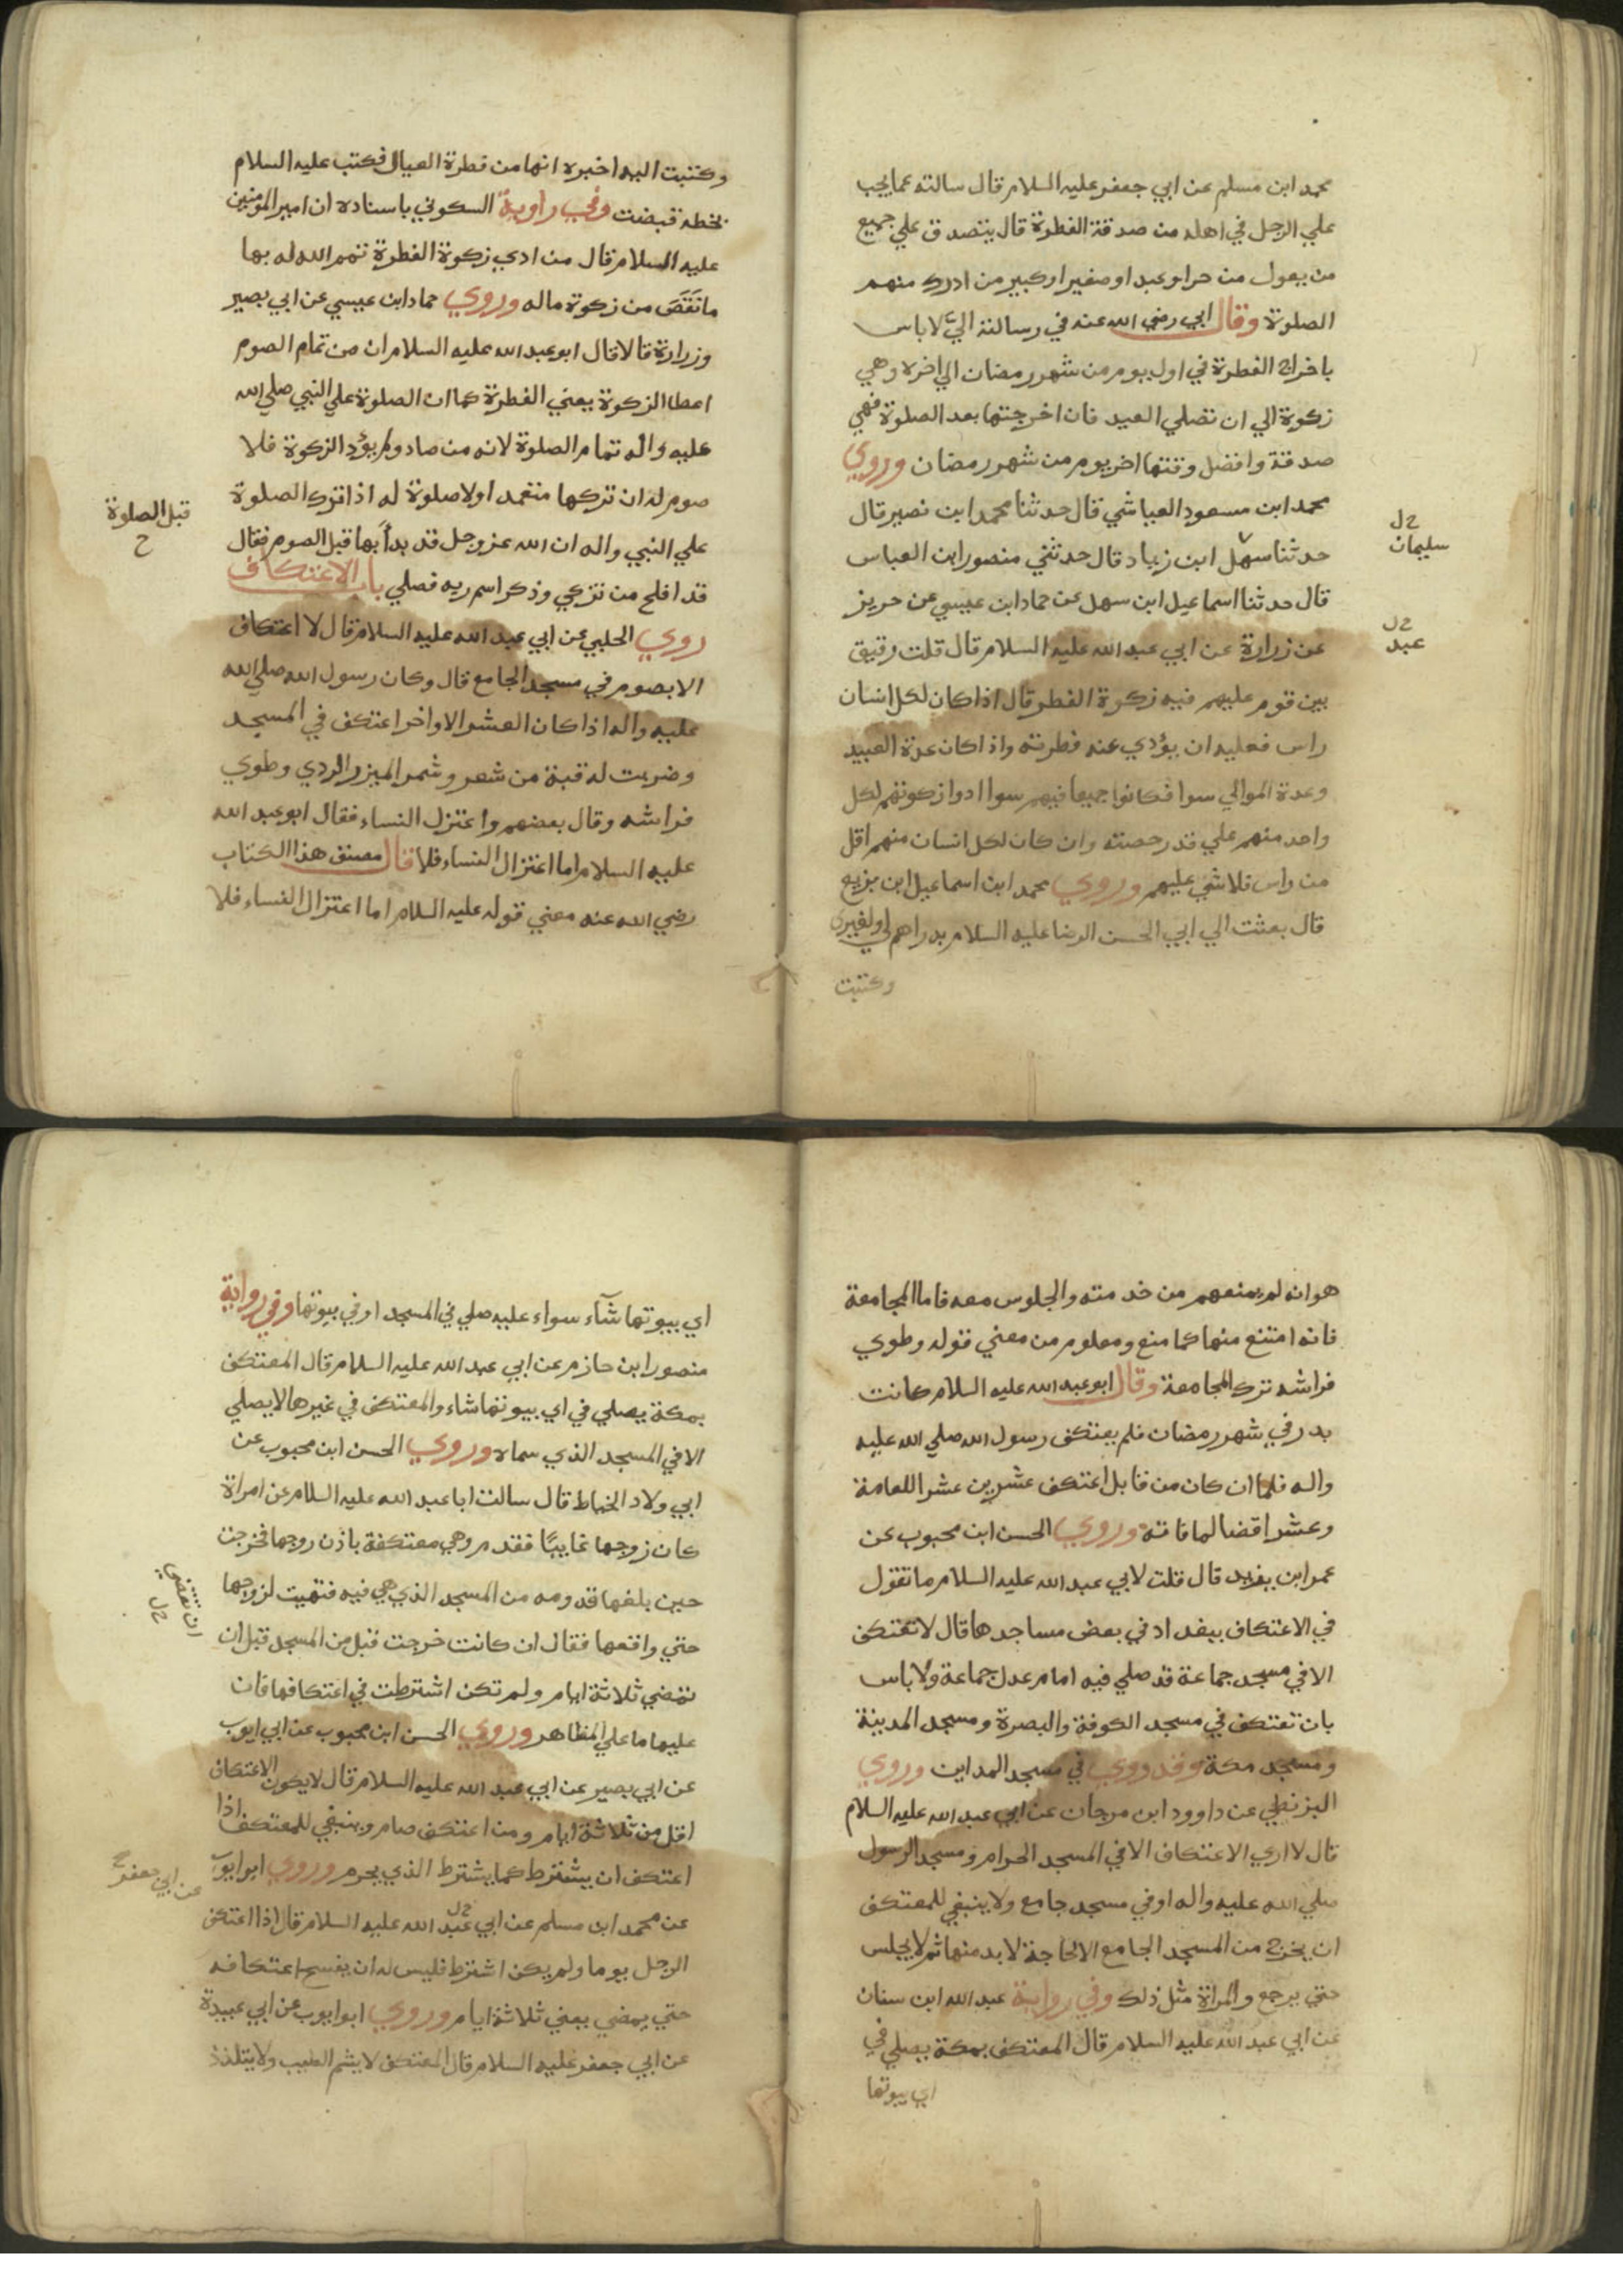 محمد ابن مسلم عن ابي جعفر عليه السلام قال سالته عما يجب
علي الرجل في اهله من صدقة الفطرة قال يتصدق علي جميع
من يعول من حر او عبد او صغير او كبير من ادرك منهم
الصلوة وقال ابي رضي الله عنه في رسالته اليّ لا باس
باخراج الفطرة في اول يوم من شهر رمضان الي اخره وهي
زكوة الي ان تصلي العيد فان اخرجتها بعد الصلوة فهي
صدقة وافضل وقتها اخر يوم من شهر رمضان وروي
محمد ابن مسعود العياشي قال حدثنا محمد ابن نصير قال
حدثنا سهل ابن زياد قال حدثني منصور ابن العباس
قال حدثنا اسماعيل ابن سهل عن حماد ابن عيسي عن حريز
عن زرارة عن ابي عبد الله عليه السلام قال قلت رقيق
بين قوم عليهم فيه زكوة الفطر قال اذا كان لكل انسان
راس فعليه ان يؤدي عنه فطرته واذا كان عدة العبيد
وعدة الموالي سوا فكانوا جميعا فيهم سوا ادوا زكوتهم لكل
واحد منهم علي قدر حصته وان كان لكل انسان منهم اقل
من راس فلا شي عليهم وروي محمد ابن اسماعيل ابن بزيع
قال بعثت الي ابي الحسن الرضا عليه السلام بدراهم لي ولغيري
وكتبت
سليمان خ ل
عبد خ ل
وكتبت اليه اخبره انها من فطرة العيال فكتب عليه السلام
بخطه قبضت وفي راوية السكوني باسناده ان امير المؤمنين
عليه السلام قال من ادي زكوة الفطرة تمم الله له بها
ما نَقَصَ من زكوة ماله وروي حماد ابن عيسي عن ابي بصير
وزرارة قالا قال ابو عبد الله عليه السلام ان من تمام الصوم
اعطا الزكوة يعني الفطرة كما ان الصلوة علي النبي صلي الله
عليه واله تمام الصلوة لانه من صاد ولم يؤد الزكوة فلا
صوم له ان تركها متعمد اولا صلوة له اذا ترك الصلوة
علي النبي واله ان الله عز وجل قد بدأ بها قبل الصوم فقال
قد افلح من تزكي وذكر اسم ربه فصلي باب الاعتكاف
روي الحلبي عن ابي عبد الله عليه السلام قال لا اعتكاف
الا بصوم في مسجد الجامع قال وكان رسول الله صلي الله
عليه واله اذا كان العشر الاواخر اعتكف في المسجد
وضربت له قبة من شعر وشمر الميزر الردي وطوي
فراشه وقال بعضهم واعتزل النساء فقال ابو عبد الله
عليه السلام اما اعتزال النساء فلا قال مصنف هذا الكتاب
رضي الله عنه معني قوله عليه السلام اما اعتزال النساء فلا
قبل الصلوة
ح
هو انه لم يمنعهم من خدمته والجلوس معه فاما المجامعة
فانه امتنع منها كما منع ومعلوم من معني قوله وطوي
فراشه ترك المجامعة وقال ابو عبد الله عليه السلام كانت
بدر في شهر رمضان فلم يعتكف رسول الله صلي الله عليه
واله فلما ان كان من قابل اعتكف عشرين عشرا للعامة
وعشرا قضا لما فاته وروي الحسن ابن محبوب عن
عمر ابن يفريد قال قلت لابي عبد الله عليه السلام ما تقول
في الاعتكاف ببغداد في بعض مساجدها قال لا تعتكف
الا في مسجد جماعة قد صلي فيه امام عدل جماعة ولا باس
بان تعتكف في مسجد الكوفة والبصرة ومسجد المدينة
ومسجد مكة وقد روي في مسجد المداين وروي
البزنطي عن داوود ابن مرجان عن ابي عبد الله عليه السلام
قال لا اري الاعتكاف الا في المسجد الحرام ومسجد الرسول
صلي الله عليه واله او في مسجد جامع ولا ينبغي للمعتكف
ان يخرج من المسجد الجامع الا لحاجة لا بد منها ثم لا يجلس
حتي يرجع والمراة مثل ذلك وفي رواية عبد الله ابن سنان
عن ابي عبد الله عليه السلام قال المعتكف بمكة يصلي في
اي بيوتها
اي بيوتها شآء سواء عليه صلي في المسجد او في بيوتها وفي رواية
منصور ابن حازم عن ابي عبد الله عليه السلام قال المعتكف
بمكة يصلي في اي بيوتها شاء والمعتكف في غيرها لا يصلي
الا في المسجد الذي سماه وروي الحسن ابن محبوب عن
ابي ولاد الخياط قال سالت ابا عبد الله عليه السلام عن امراة
كان زوجها غايبًا فقدم وهي معتكفة باذن زوجها فخرجت
حين بلغها قدومه من المسجد الذي هي فيه فتهيت لزوجها
حتي واقعها فقال ان كانت خرجت قبل من المسجد قبل ان
تمضي ثلاثة ايام ولم تكن اشترطت في اعتكافها فان
عليها ما علي المظاهر وروي الحسن ابن محبوب عن ابي ايوب
عن ابي بصير عن ابي عبد الله عليه السلام قال لا يكون الاعتكاف
اقل من ثلاثة ايام ومن اعتكف صام وينبغي للمعتكف اذا
اعتكف ان يشترط كما يشترط الذي يحرم وروي ابو ايوب
عن محمد ابن مسلم عن ابي عبد الله عليه السلام قال اذا اعتكف
الرجل يوما ولم يكن اشترط فليس له ان يفسح اعتكافه
حتي يمضي يعني ثلاثة ايام وروي ابو ايوب عن ابي عبيدة
عن ابي جعفر عليه السلام قال المعتكف لا يشم الطيب ولا يتلذذ
ان تقضي خ ل
عن ابي جعفر ح